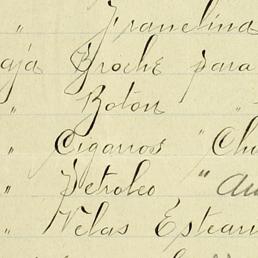 " Franelina
aja Broche para
" Boton "
" Cigarros "Chi
" Petroleo "au
" Velas Estear